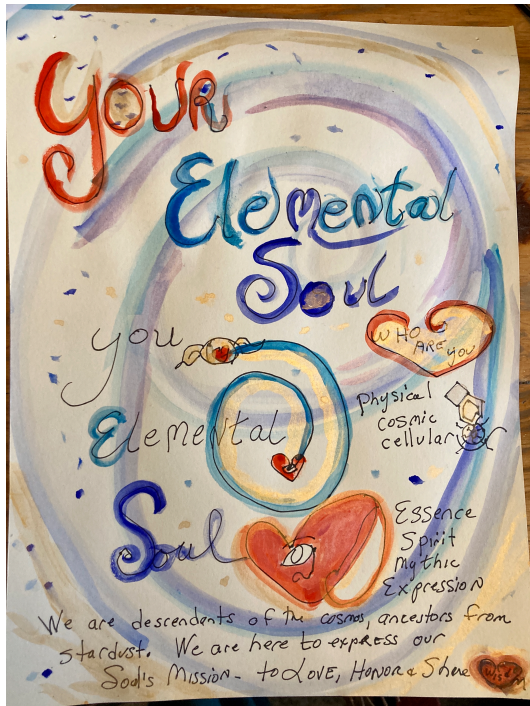 YOUR
Elemental
Soul
you
WHO
ARE
YOU
Elemental
physical
cosmic
cellular
Soul
Essence
Spirit
Mythic
Expression
We are descendants of the cosmos, ancestors from
stardust. We are here to express our
Soul's Mission - to LOVE, HONOR & Share